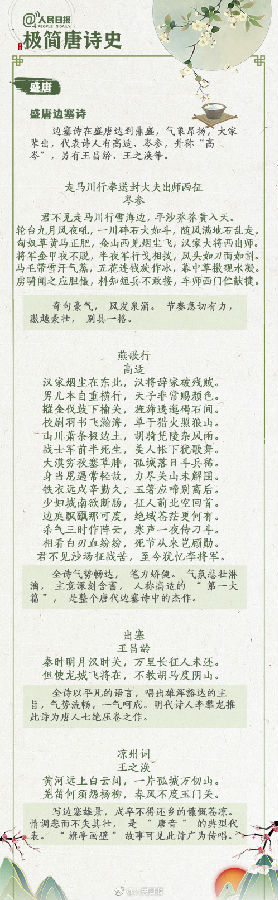 @人民日报
极简唐诗史
盛唐
盛唐边塞诗
边塞诗在盛唐达到鼎盛，气象昂扬，大家
辈出，代表诗人有高适、岑参，并称“高
岑”，另有王昌龄、王之涣等。
走马川行奉送封大夫出师西征
岑参
君不见走马川行雪海边，平沙莽莽黄入天。
轮台九月风夜吼，一川碎石大如斗，随风满地石乱走。
匈奴草黄马正肥，金山西见烟尘飞，汉家大将西出师。
将军金甲夜不脱，半夜军行戈相拨，风头如刀面如割。
马毛带雪汗气蒸，五花连钱旋作冰，幕中草檄砚水凝。
虏骑闻之应胆慑，料知短兵不敢接，车师西门伫献捷。
奇句豪气，风发泉涌。节奏急切有力，
激越豪壮，别具一格。
燕歌行
高适
汉家烟尘在东北，汉将辞家破残贼。
男儿本自重横行，天子非常赐颜色。
摐金伐鼓下榆关，旌旆逶迤碣石间。
校尉羽书飞瀚海，单于猎火照狼山。
山川萧条极边土，胡骑凭陵杂风雨。
战士军前半死生，美人帐下犹歌舞。
大漠穷秋塞草腓，孤城落日斗兵稀。
身当恩遇常轻敌，力尽关山未解围。
铁衣远戍辛勤久，玉箸应啼别离后。
少妇城南欲断肠，征人蓟北空回首。
边庭飘飖那可度，绝域苍茫更何有。
杀气三时作阵云，寒声一夜传刁斗。
相看白刃血纷纷，死节从来岂顾勋。
君不见沙场征战苦，至今犹忆李将军。
全诗气势畅达，笔力矫健。气氛悲壮淋
漓，主意深刻含蓄，人称高适的“第一大
篇”，是整个唐代边塞诗中的杰作。
出塞
王昌龄
秦时明月汉时关，万里长征人未还。
但使龙城飞将在，不教胡马度阴山。
全诗以平凡的语言，唱出雄浑豁达的主
旨，气势流畅，一气呵成。明代诗人李攀龙推
此诗为唐人七绝压卷之作。
凉州词
王之涣
黄河远上白云间，一片孤城万仞山。
羌笛何须怨杨柳，春风不度玉门关。
写边塞雄景，戍卒不得还乡的慷慨苍凉。
情调悲而不失其壮，是“唐音”的典型代
表。“旗亭画壁”故事可见此诗广为传唱。
@人民日报